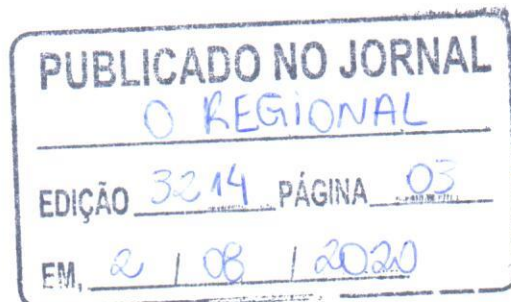 PUBLICADO NO JORNAL
O REGIONAL
EDIÇÃO 3214 PÁGINA 03
EM, 2 / 08 / 2020